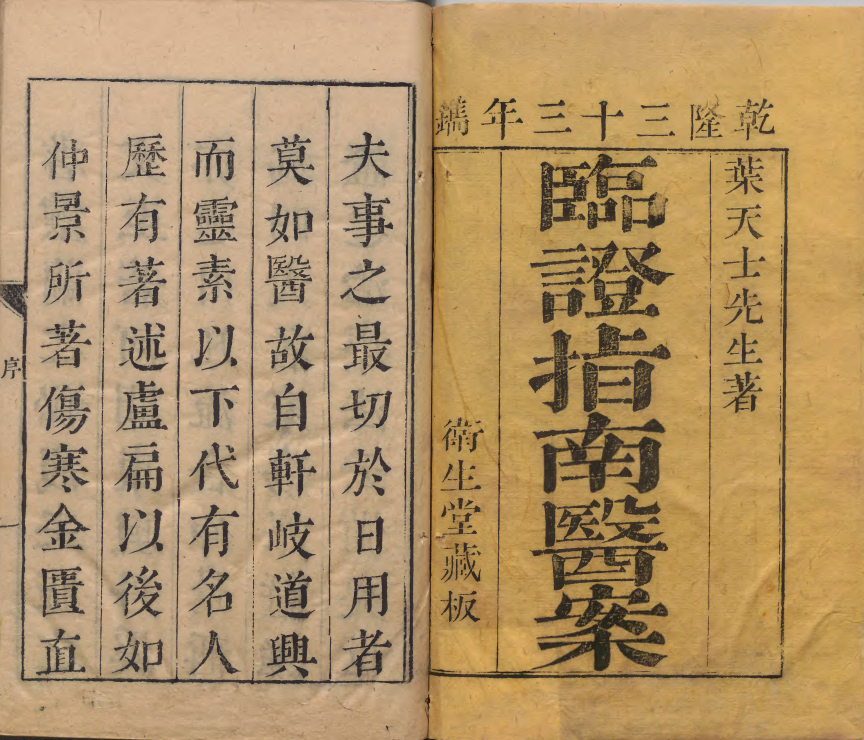 乾隆三十三年鐫
葉天士先生著
臨證指南醫案
衛生堂藏板
夫事之最切於日用者
莫如醫故自軒岐道興
而靈素以下代有名人
歷有著述盧扁以後如
仲景所著傷寒金匱直
序